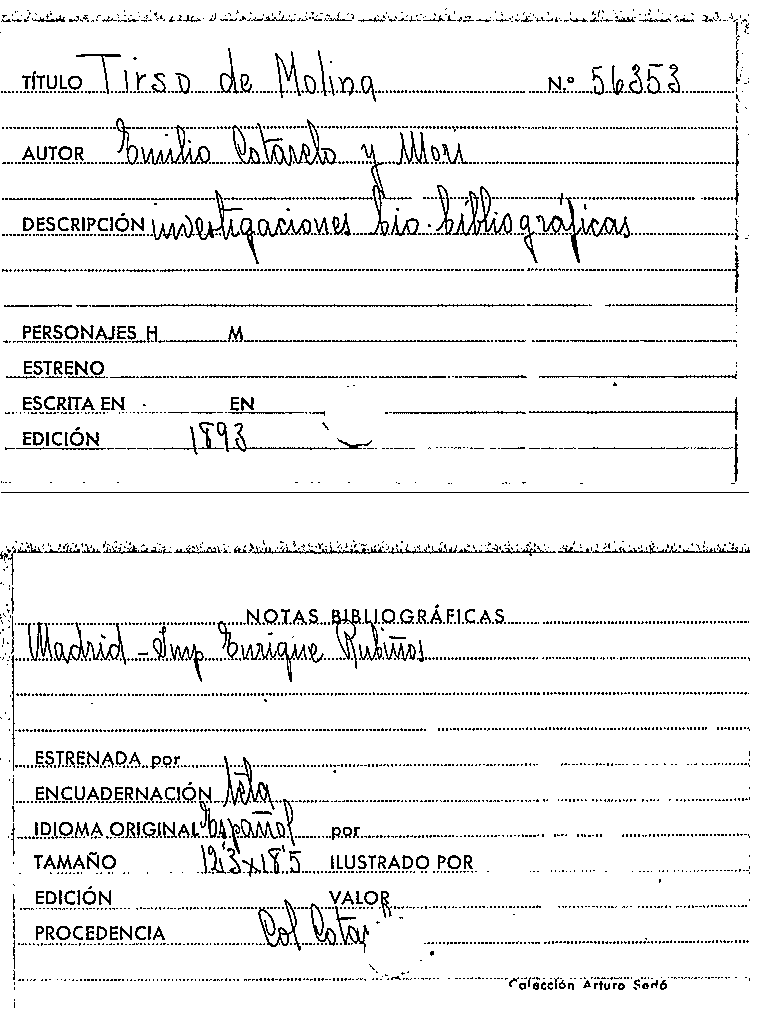 TÍTULO Tirso de Molina N.º 56353
AUTOR Emilio Cotarelo y Mori
DESCRIPCIÓN investigaciones bio-bibliográficas
PERSONAJES H M
ESTRENO
ESCRITA EN EN
EDICIÓN 1893
NOTAS BIBLIOGRÁFICAS
Madrid - Imp Enrique Rubiños
ESTRENADA por
ENCUADERNACIÓN tela
IDIOMA ORIGINAL Español por
TAMAÑO 12'3x18'5 ILUSTRADO POR
EDICIÓN VALOR
PROCEDENCIA Col Cotar
Colección Arturo Sedó